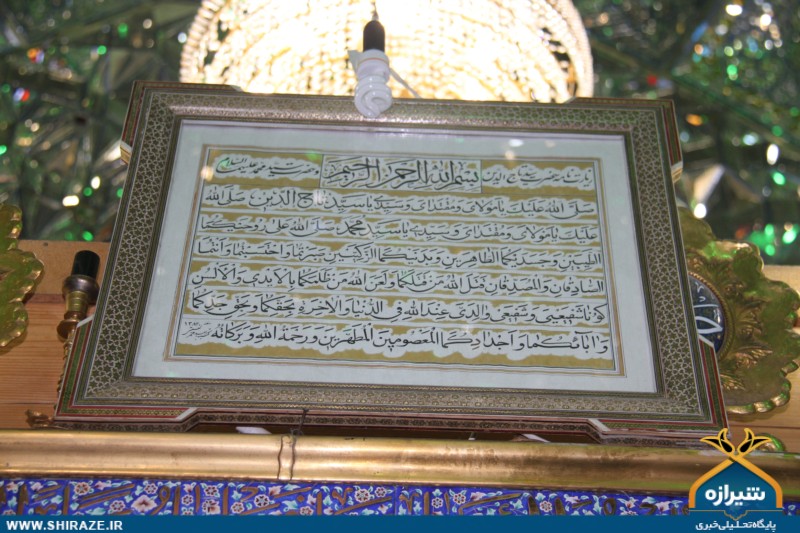 زیارتنامه حضرت سید تاج الدین
بسم الله الرحمن الرحیم
و حضرت سید محمد علیهما السلام
صلی الله علیک یا مولای و مقتدای و سیدی یا سید تاج الدین صلی الله
علیک یا مولای و مقتدای و سیدی یا سید محمد صلی الله علی روحیکما
الطیبین و جسدیکما الطاهرین و بدنیکما الزکیین صبرتما و احتسبتما و انتما
الصادقان و المصدقان قتل الله من قتلکما و لعن الله من ظلمکما بالایدی و الالسن
کونا شفیعی و شفیع والدی عند الله فی الدنیا و الاخرة بحقکما و بحق جدکما
و ابائکما و اجدادکما المعصومین المطهرین و رحمة الله و برکاته
شیرازه
پایگاه تحلیلی خبری
WWW.SHIRAZE.IR
WWW.SHIRAZE.IR